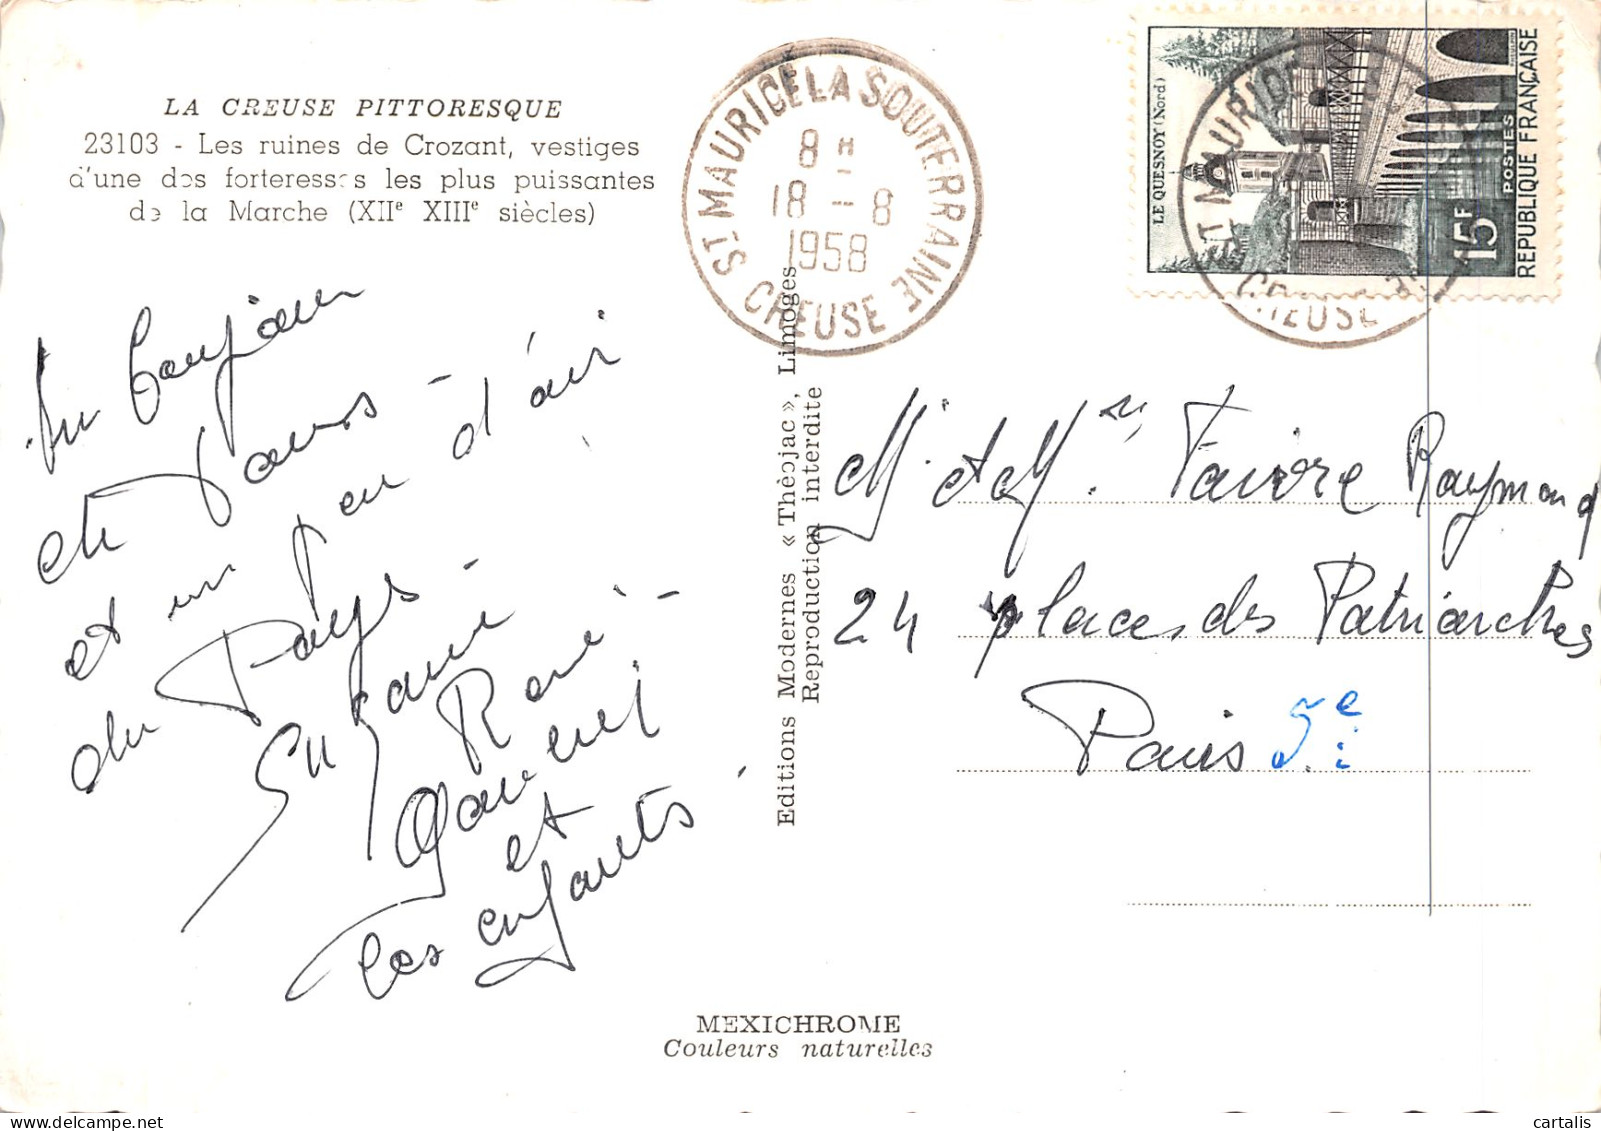 LA CREUSE PITTORESQUE
23103 - Les ruines de Crozant, vestiges
d'une des forteresses les plus puissantes
de la Marche (XIIe XIIIe siècles)
ST MAURICE LA SOUTERRAINE
8 H
18 - 8
1958
CREUSE
LE QUESNOY (Nord)
15F
POSTES
REPUBLIQUE FRANÇAISE
ST MAURICE
CREUSE
Un bonjour
et un peu d'air
du Pays -
Suzanne
René -
et
les enfants
Editions Modernes « Théojac », Limoges
Reproduction interdite
M. et Mme Faivre Raymond
24 place des Patriarches
Paris 5e
MEXICHROME
Couleurs naturelles
cartalis